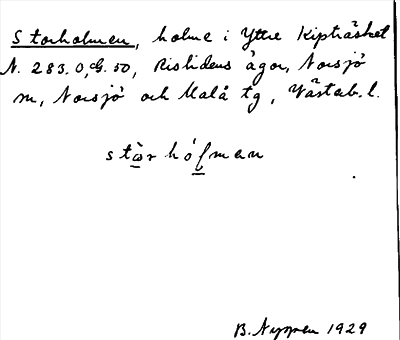 Storholmen, holme i Yttre Kipträsket
N. 283.0, G. 50, Rislidens ägor, Norsjö
sn, Norsjö och Malå tg, Västerb. l.
stòrhólman
B. Nyman 1929